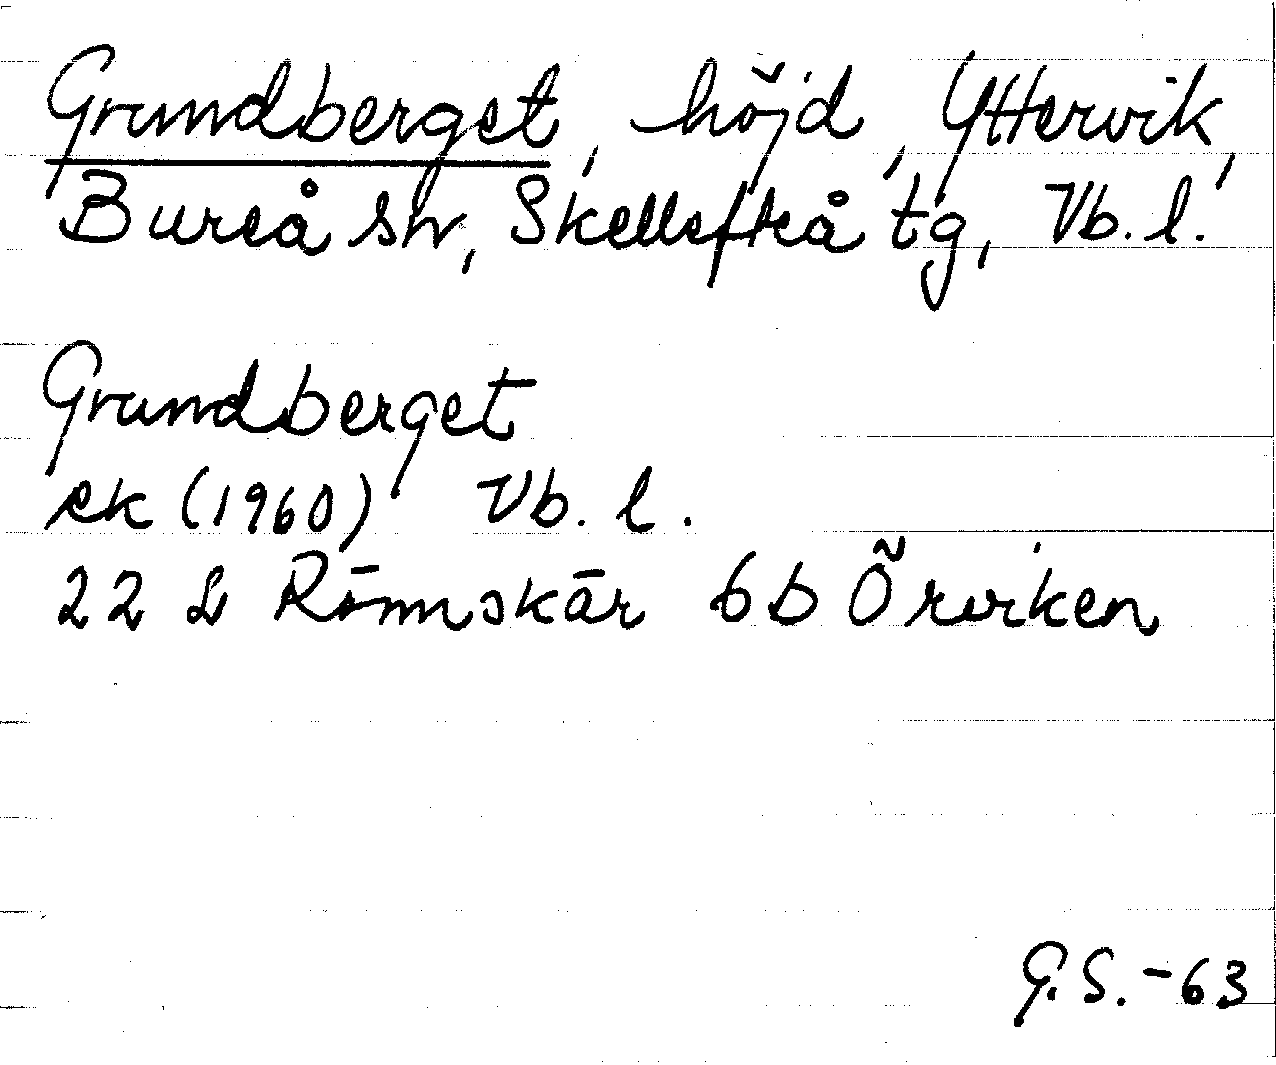 Grundberget, höjd, Yttervik,
Bureå sn, Skellefteå tg, Vb. l.
Grundberget
ek (1960) Vb. l.
22 L Rönnskär 6b Örviken
G.S. -63